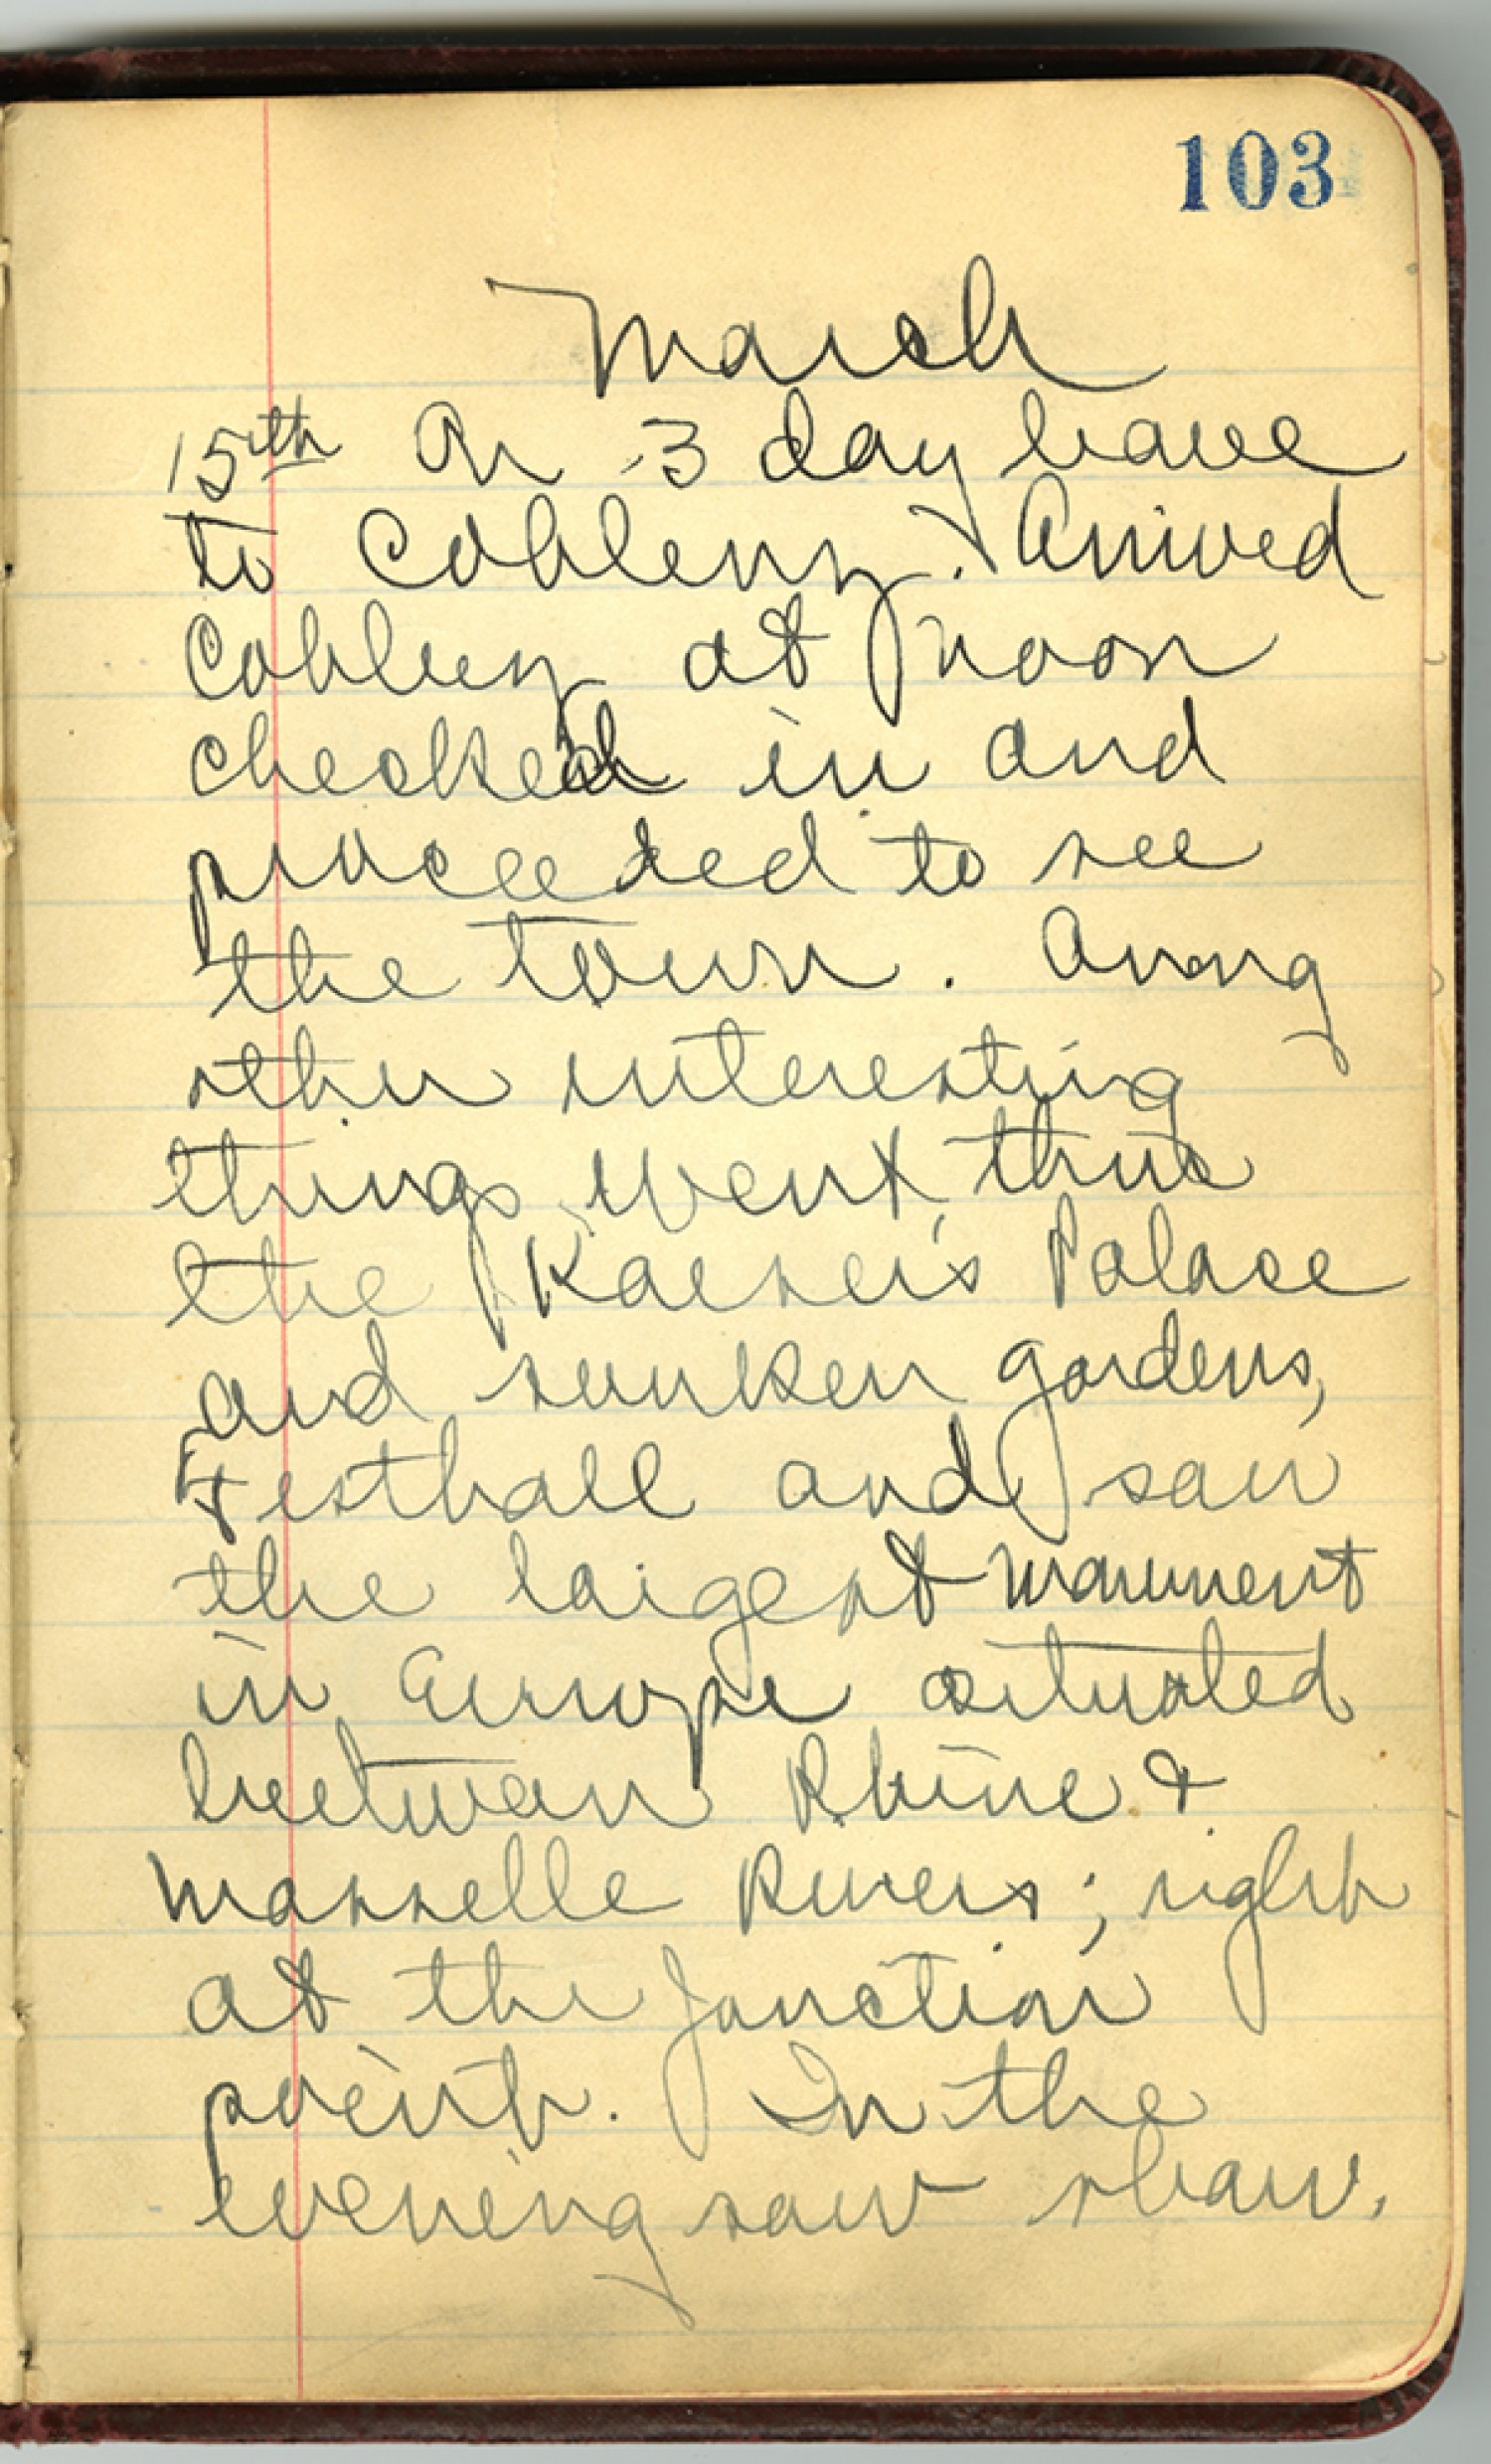 103
March
15th On 3 day leave
to Coblenz. Arrived
Coblenz at noon
checked in and
proceeded to see
the town. Among
other interesting
things went thru
the Kaeser's Palace
and sunken gardens,
Festhall and saw
the largest monument
in Europe situated
beetwen Rhine &
Mosselle Rivers; right
at the junction
point. In the
evening saw show.